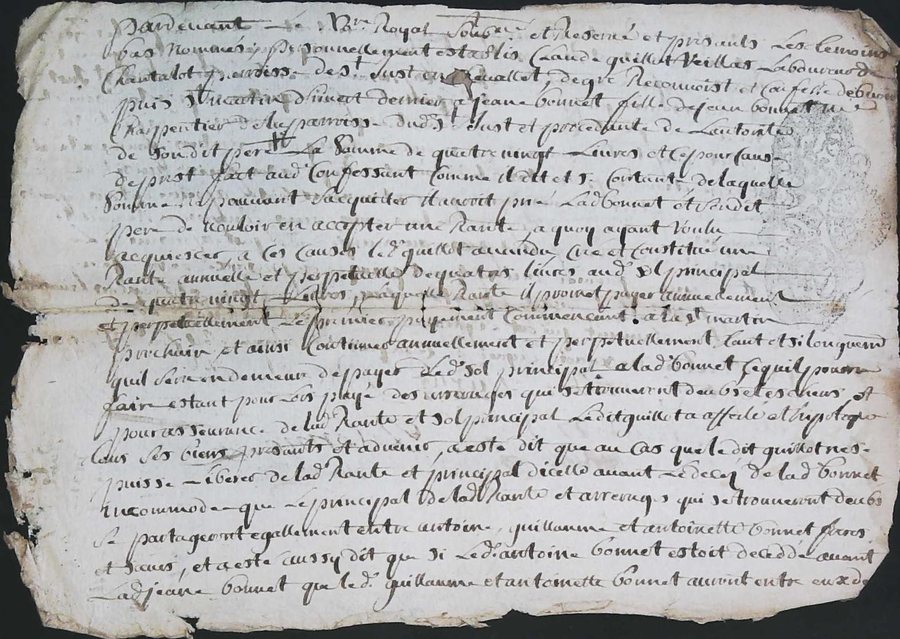 Pardevant Le No.re Royal Soubz.né et Reservé et presants Les temoins
bas nommés, Personnellement establis Claude guillot Veillas Laboureur de
Chantalot parroisse de St Just en de gré Reconnoist et Confesse debvoir
puis St martin d'hiver dernier a jeane bonnet fille de jean bonnet me
Charpentier de la parroisse dud. St Just et procedante de L'autorité
de Son dit pere La Somme de quatre vingt Livres et Ce pour Cause
de prest fait aud. Confessant Comme il dit et se Contante, de laquelle
Somme ne pouvant S'acquiter il auroit prié Lad bonnet et Sondit
pere de vouloir en accepter une Rante, a quoy ayant voulu
acquiescer, a Ces Causes led. guillot a vendu Créé et Constitué une
Rante annuelle et perpetuelle de quatre livres aud Sol principal
de quatre vingt Livres, Laquelle Rante il promet payer annuellement
et perpetuellement Le premier payement Commencant a la St martin
prochain et ainsi Continuer annuellement et perpetuellement tant et si longuement
quil Sera en demeure de payer Led. Sol principal a lad bonnet Ce quil pourra
faire estant pour Lors payé des arrerages qui se trouveront deubs et escheus, et
pour asseurance de lad Rante et Sol principal Ledit guillot a affecté et hypotequé
tous Ses biens presants et advenir, a esté dit que au Cas que le dit guillot ne se
puisse Liberer de lad Rante et principal d'icelle avant Le deceq de lad bonnet
incommode que Le principal de lad Rante et arrerages qui se trouveront deubs
Se partageront egallement entre antoine, guillaume et antoinette bonnet freres
et Seurs, et a esté aussy dit que Si Led. antoine bonnet estoit decedé avant
Lad jeane bonnet que led. guillaume et antoinette bonnet auront entre eux de